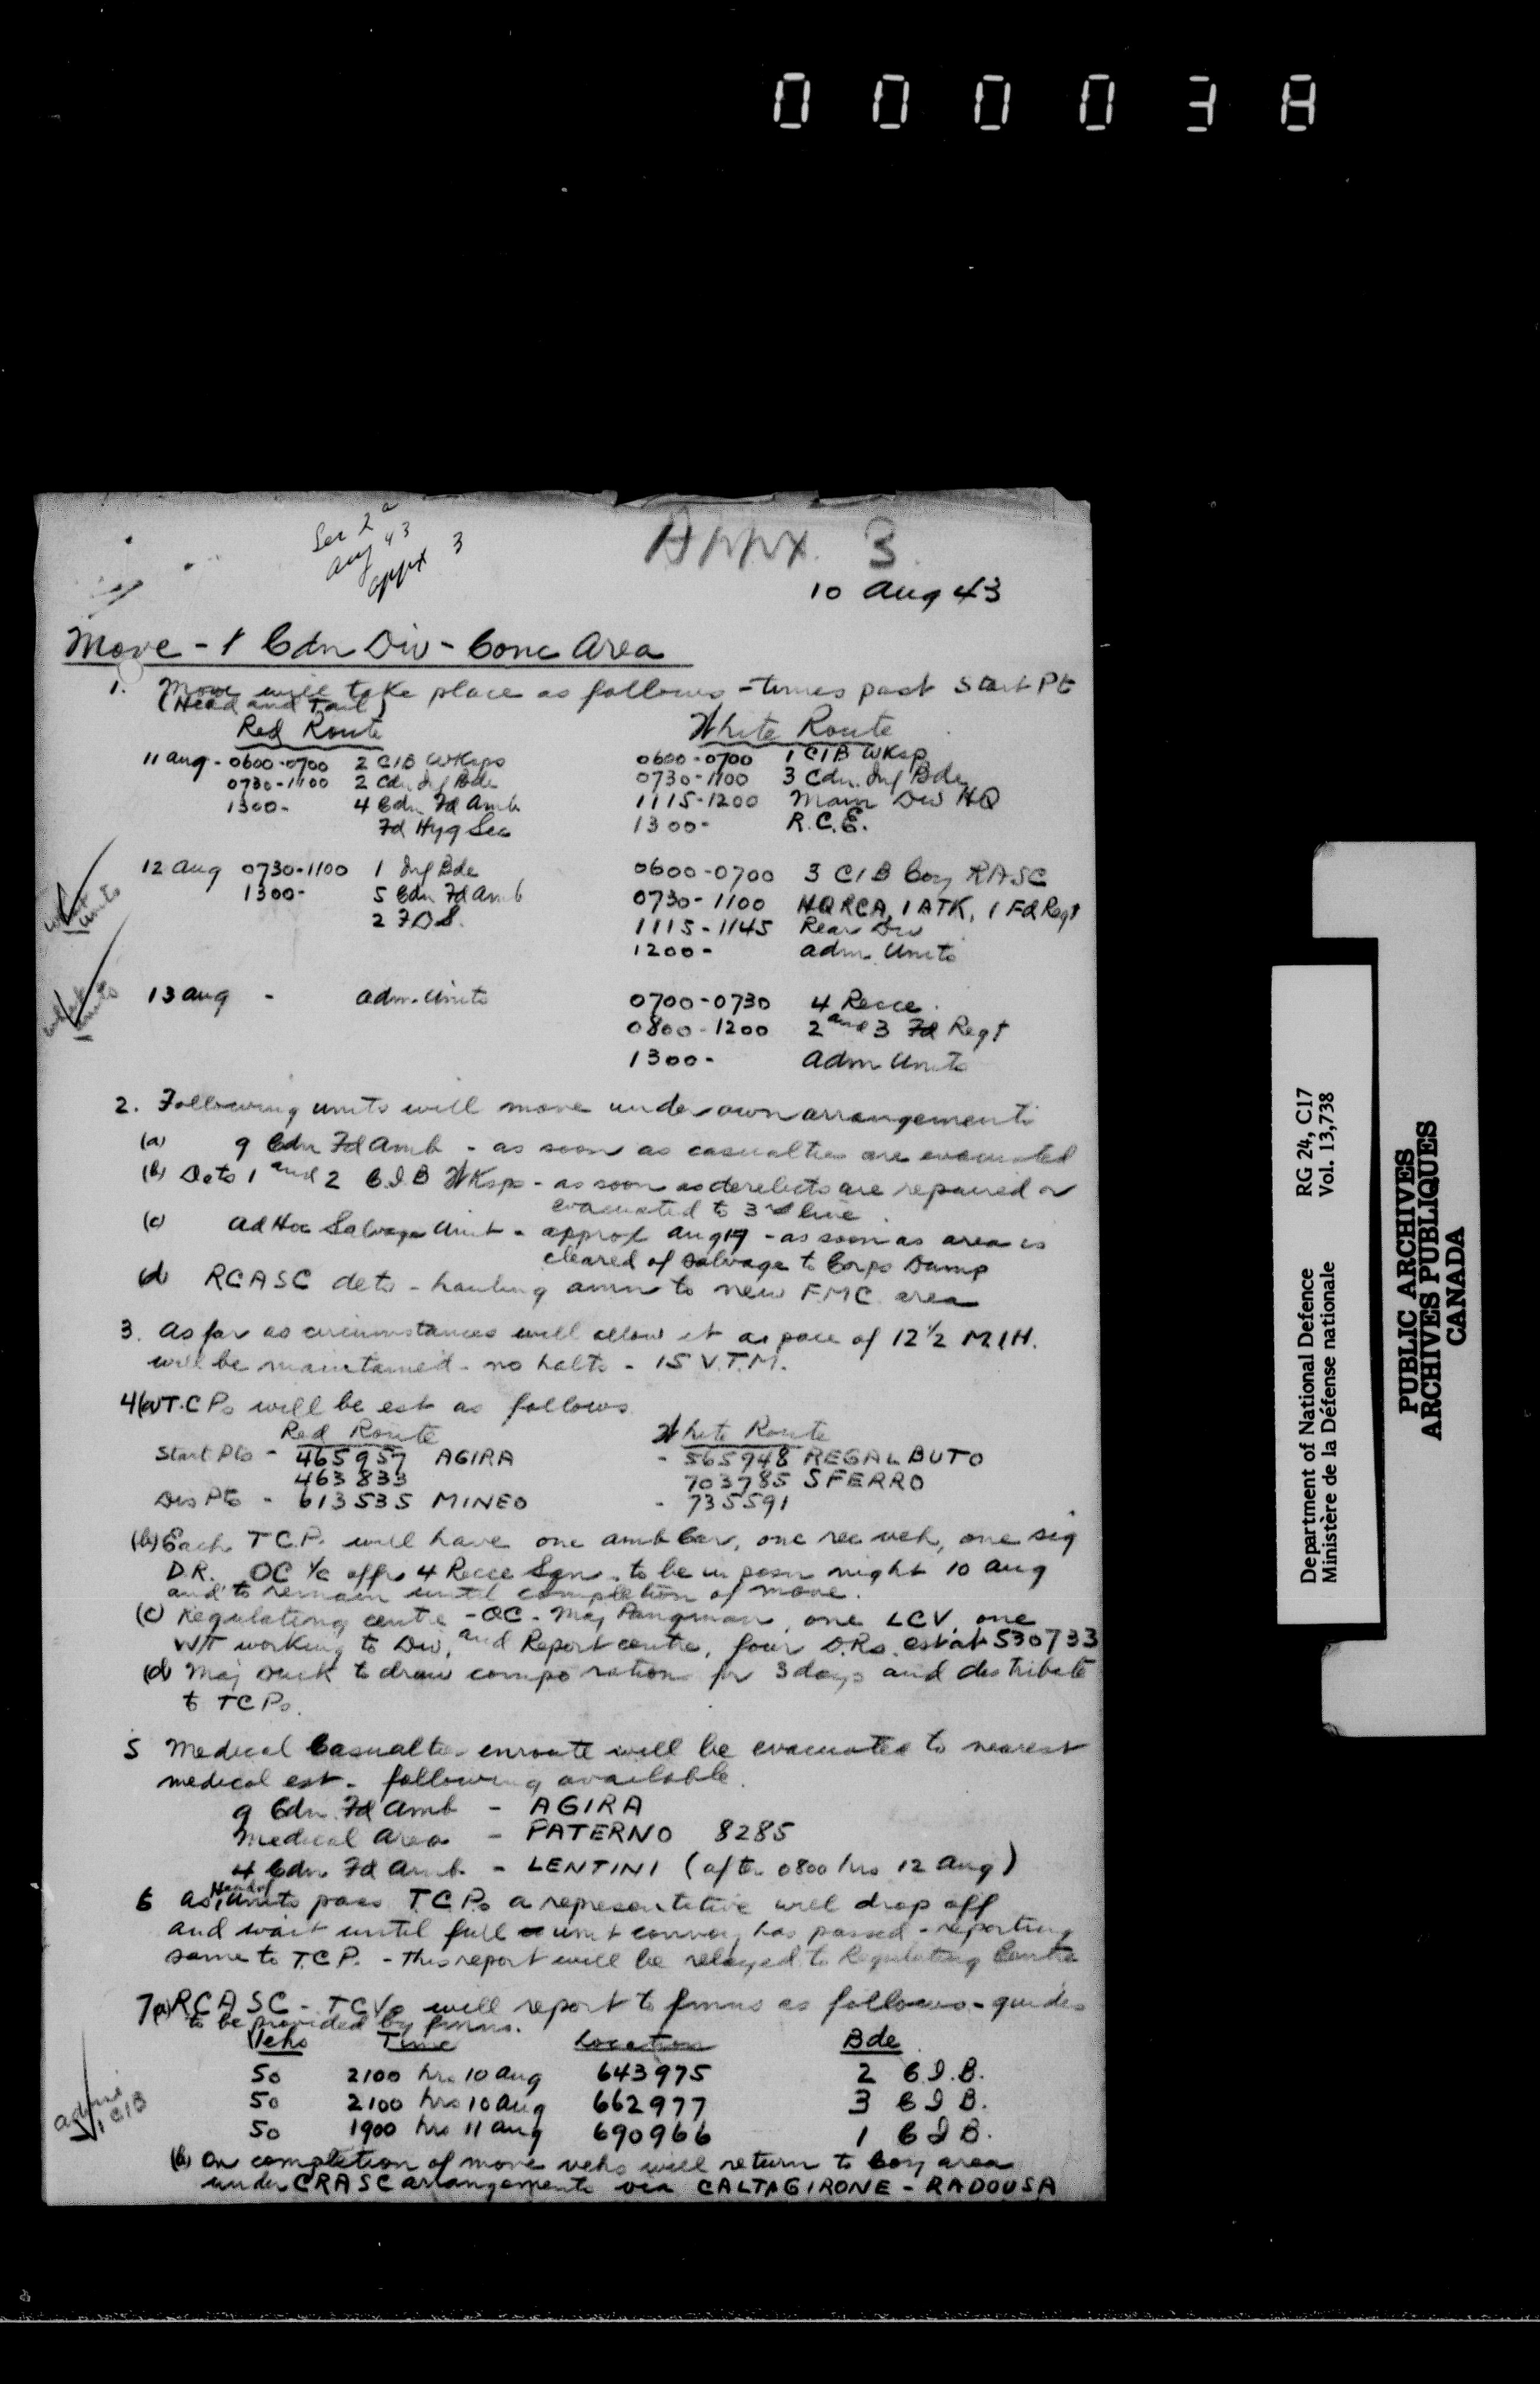 0 0 0 0 3 8
Appx 3
Aug 43
appx 3
10 Aug 43
Move - 1 Cdn Div - Conc Area
1. Move will take place as follows - times past Start Pt
(Head and Tail)
Red Route White Route
11 Aug - 0600-0700 2 CIB WKsps 0600-0700 1 CIB WKsp
0730-1100 2 Cdn Inf Bde 0730-1100 3 Cdn Inf Bde
1300- 4 Cdn Fd Amb 1115-1200 Main Div HQ
Fd Hyg Sec 1300- R.C.E.
12 Aug 0730-1100 1 Inf Bde 0600-0700 3 CIB Coy RASC
1300- 5 Cdn Fd Amb 0730-1100 HQ RCA, 1 ATK, 1 Fd Regt
2 F.D.S. 1115-1145 Rear Div
1200- Adm. Units
what units
13 Aug - Adm. Units 0700-0730 4 Recce.
what units
0800-1200 2 and 3 Fd Regt
1300- Adm Units
2. Following units will move under own arrangements
(a) 9 Cdn Fd Amb - as soon as casualties are evacuated
(b) Dets 1 and 2 C.I.B WKsps - as soon as derelicts are repaired or
evacuated to 3rd line.
(c) Ad Hoc Salvage Unit - approx Aug 19 - as soon as area is
cleared of salvage to Corps Dump
(d) RCASC dets - hauling amn to new F.M.C. area
3. As far as circumstances will allow it a pace of 12 1/2 M.I.H.
will be maintained - no halts - 15 V.T.M.
4(a) T.C.Ps will be est as follows
Red Route White Route
Start Pts - 465957 AGIRA - 565948 REGALBUTO
463833 703785 SFERRO
Dis Pts - 613535 MINEO - 735591
(b) Each T.C.P. will have one amb car, one rec veh, one sig
D.R. OC i/c offr 4 Recce Sqn. to be in posn night 10 Aug
and to remain until completion of move.
(c) Regulating centre - OC - Maj Pangman, one LCV, one
W/T working to Div, and Report centre, four D.Rs. est at 530733
(d) Maj Duck to draw compo rations for 3 days and distribute
to TCPs.
5 Medical Casualties enroute will be evacuated to nearest
medical est - following available.
9 Cdn Fd Amb - AGIRA
Medical Area - PATERNO 8285
4 Cdn Fd Amb - LENTINI (after 0800 hrs 12 Aug)
6 As Head of Units pass T.C.Ps a representative will drop off
and wait until full unit convoy has passed - reporting
same to T.C.P. - This report will be relayed to Regulating Centre
7(a) RCASC - TCVs will report to fmns as follows - guides
to be provided by fmns.
Vehs Time Location Bde
50 2100 hrs 10 Aug 643975 2 C.I.B.
50 2100 hrs 10 Aug 662977 3 C I B.
50 1900 hrs 11 Aug 690966 1 C I B.
1 CIB
(b) On completion of move vehs will return to Coy area
under CRASC arrangements via CALTAGIRONE - RADDUSA
Department of National Defence RG 24, C17
Ministère de la Défense nationale Vol. 13,738
PUBLIC ARCHIVES
ARCHIVES PUBLIQUES
CANADA